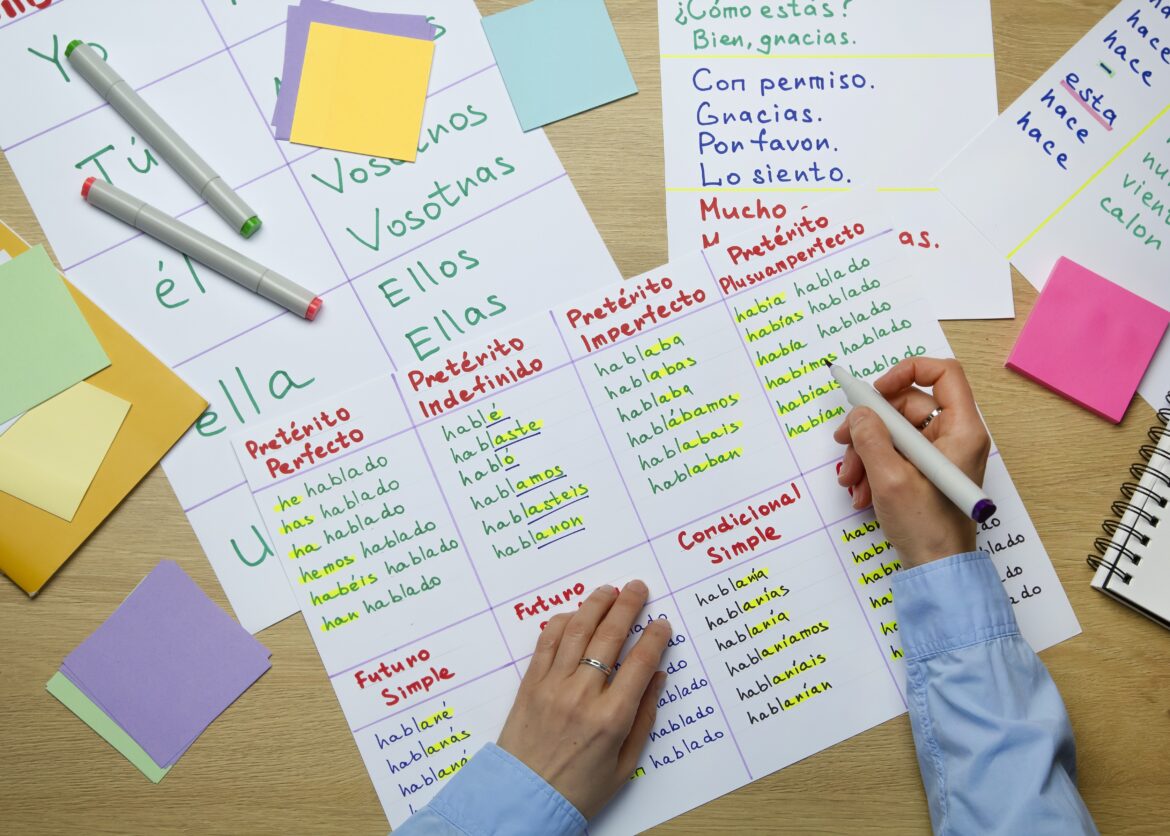 Yo
Tú
él
ella
Vosotnas
Ellos
Ellas
¿Cómo estás?
Bien, gnacias.
Con permiso.
Gnacias.
Pon favon.
Lo siento.
Mucho
as.
hace
hace
esta
hace
hace
calon
Pretérito
Perfecto
he hablado
has hablado
ha hablado
hemos hablado
habéis hablado
han hablado
Pretérito
Indefinido
hablé
hablaste
habló
hablamos
hablasteis
hablanon
Pretérito
Imperfecto
hablaba
hablabas
hablaba
hablábamos
hablabais
hablaban
Pretérito
Plusuamperfecto
había hablado
habías hablado
había hablado
habímos hablado
habíais hablado
habían
Futuro
Simple
hablané
hablanás
hablaná
Futuro
hablado
hablado
hablado
Condicional
Simple
hablanía
hablanías
hablanía
hablaníamos
hablaníais
hablanían